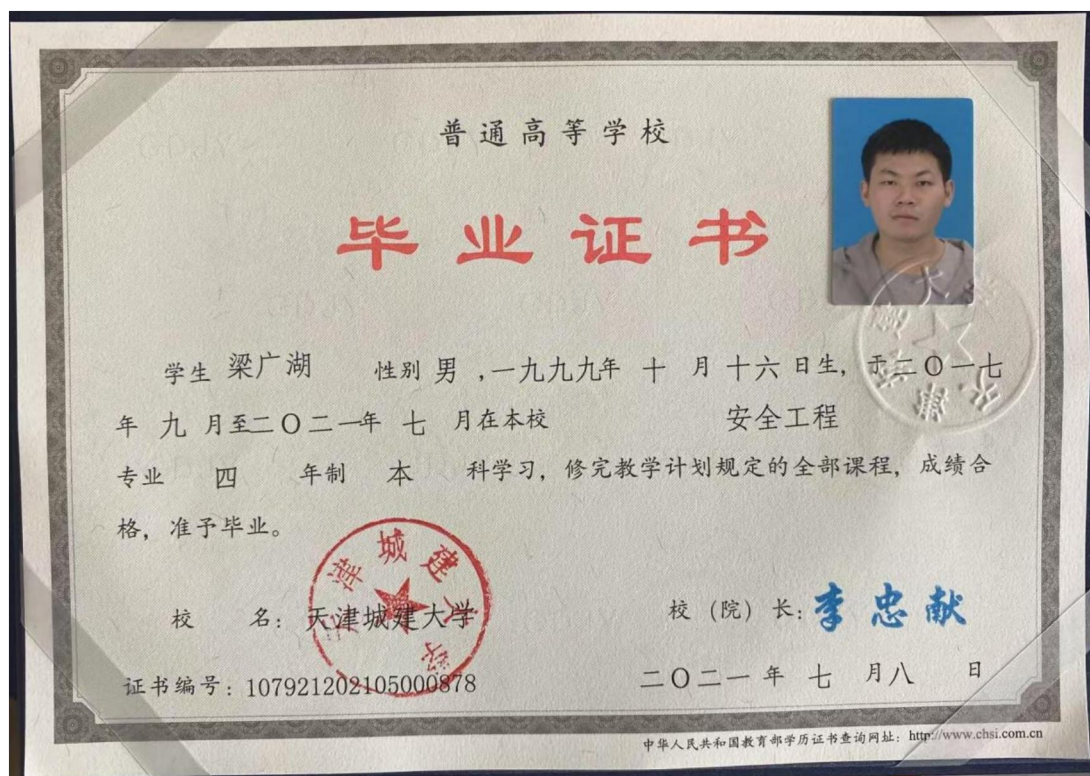 普通高等学校
毕业证书
学生 梁广湖 性别 男 ,一九九九年 十 月 十六 日生, 于二〇一七
年 九 月至二〇二一年 七 月在本校 安全工程
专业 四 年制 本 科学习, 修完教学计划规定的全部课程, 成绩合
格, 准予毕业。
天津城建大学
校 名: 天津城建大学
校 (院) 长: 李忠献
证书编号: 107921202105000878
二〇二一 年 七 月八 日
中华人民共和国教育部学历证书查询网址: http://www.chsi.com.cn